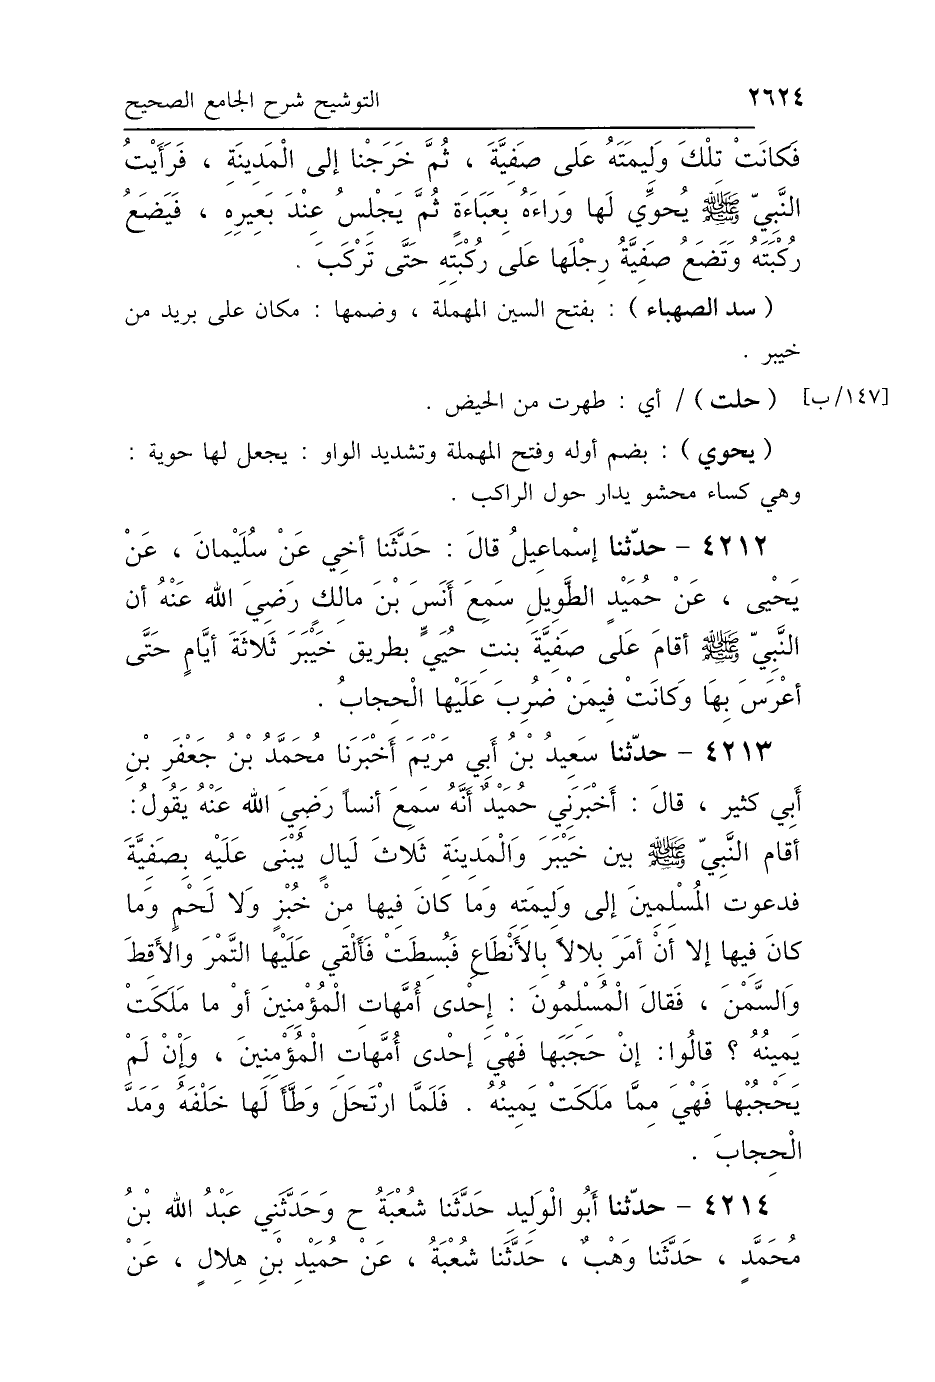 ٢٦٢٤
التوشيح شرح الجامع الصحيح
فَكَانَتْ تِلْكَ وَلِيمَتَهُ عَلى صَفِيَّةَ ، ثُمَّ خَرَجْنا إلى الْمَدِينَةِ ، فَرَأَيْتُ
النَّبِيّ ﷺ يُحوِّي لَها وَراءَهُ بِعَبَاءَةٍ ثُمَّ يَجْلِسُ عِنْدَ بَعِيرِهِ ، فَيَضَعُ
رُكْبَتَهُ وَتَضَعُ صَفِيَّةُ رِجْلَها عَلى رُكْبَتِهِ حَتَّى تَرْكَبَ .
( سد الصهباء ) : بفتح السين المهملة ، وضمها : مكان على بريد من
خيبر .
[١٤٧/ب] ( حلت ) / أي : طهرت من الحيض .
( يحوي ) : بضم أوله وفتح المهملة وتشديد الواو : يجعل لها حوية :
وهي كساء محشو يدار حول الراكب .
٤٢١٢ - حدّثنا إسْماعِيلُ قالَ : حَدَّثَنا أخي عَنْ سُلَيْمانَ ، عَنْ
يَحْيى ، عَنْ حُمَيْدٍ الطَّوِيلِ سَمِعَ أَنَسَ بْنَ مالِكٍ رَضِيَ الله عَنْهُ أن
النَّبِيّ ﷺ أقامَ عَلى صَفِيَّةَ بنت حُيَيٍّ بطريق خَيْبَرَ ثَلاثَةَ أيَّامٍ حَتَّى
أعْرَسَ بِهَا وَكانَتْ فِيمَنْ ضُرِبَ عَلَيْها الْحِجابُ .
٤٢١٣ - حدّثنا سَعِيدُ بْنُ أبي مَرْيَمَ أَخْبَرَنَا مُحَمَّدُ بْنُ جَعْفَرِ بْنِ
أَبِي كثير ، قالَ : أَخْبَرَنِي حُمَيْدٌ أَنَّهُ سَمِعَ أنساً رَضِيَ الله عَنْهُ يَقُولُ:
أقام النَّبِيّ ﷺ بين خَيْبَرَ وَالْمَدِينَةِ ثَلاثَ لَيالٍ يُبْنَى عَلَيْهِ بِصَفِيَّةَ
فدعوت الْمُسْلِمِينَ إلى وَلِيمَتِهِ وَما كانَ فِيها مِنْ خُبْزٍ وَلا لَحْمٍ وَما
كانَ فِيها إلا أنْ أمَرَ بِلالاً بِالأَنْطاعِ فَبُسِطَتْ فَأَلْقي عَلَيْها التَّمْرَ والأقِطَ
وَالسَّمْنَ ، فَقالَ الْمُسْلِمُونَ : إحْدى أُمَّهات الْمُؤْمِنِينَ أوْ ما مَلَكَتْ
يَمِينُهُ ؟ قالُوا: إنْ حَجَبَها فَهْيَ إحْدى أُمَّهاتِ الْمُؤْمِنِينَ ، وَإنْ لَمْ
يَحْجُبْها فَهْيَ مِمَّا مَلَكَتْ يَمِينُهُ . فَلَمَّا ارْتَحَلَ وَطَّأَ لَها خَلْفَهُ وَمَدَّ
الْحِجابَ .
٤٢١٤ - حدّثنا أَبُو الْوَلِيدِ حَدَّثَنا شُعْبَةُ ح وَحَدَّثَنِي عَبْدُ الله بْنُ
مُحَمَّدٍ ، حَدَّثَنا وَهْبٌ ، حَدَّثَنا شُعْبَةُ ، عَنْ حُمَيْدِ بْنِ هِلالٍ ، عَنْ